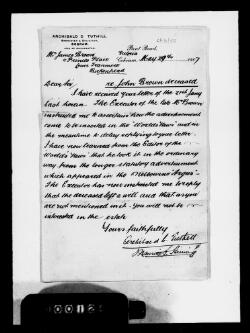 ARCHIBALD D TUTHILL
BARRISTER & SOLICITOR
COBRAM
Post Bond
Cobram May 29th 1917
Mr James Brown
Place
Birkenhead
Dear Sir, re John Brown deceased
I have received your letter of the 21st Jany
last hereon. The Executor of the late Mr Brown
instructed me to ascertain how the advertisement
came to be inserted in the "World's News" and in
the meantime to delay replying to your letter.
I have now learned from the Editor of the
"World's News" that he took it in the ordinary
way from the longer statutory advertisement
which appeared in the Melbourne "Argus".
The Executor has now instructed me to reply
that the deceased left a will and that as you
are not mentioned in it you will not be
interested in the estate
Yours faithfully
Archibald D. Tuthill